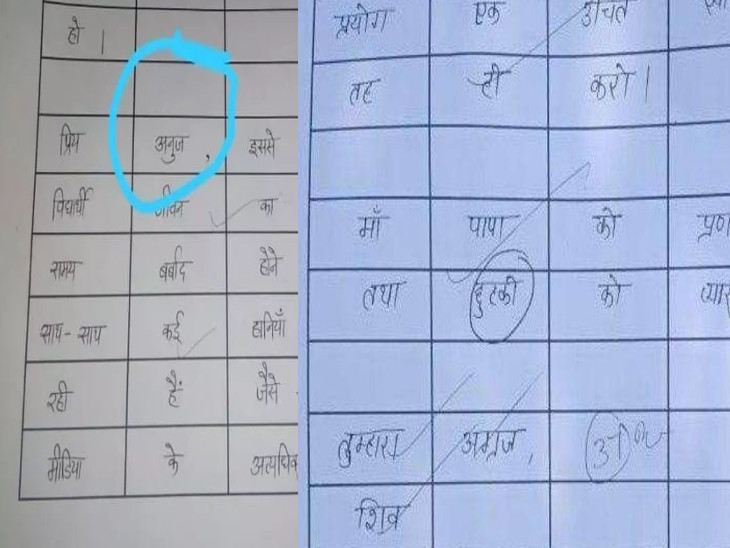 हो ।
प्रिय अनुज , इससे
विद्यार्थी जीवन का
समय बर्बाद होने
साथ-साथ कई हानियाँ
रही हैं जैसे
मीडिया के अत्यधिक
प्रयोग एक उचित
तह ही करो ।
माँ पापा को
तथा छुटकी को प्यार
तुम्हारा अग्रज ,
शिव